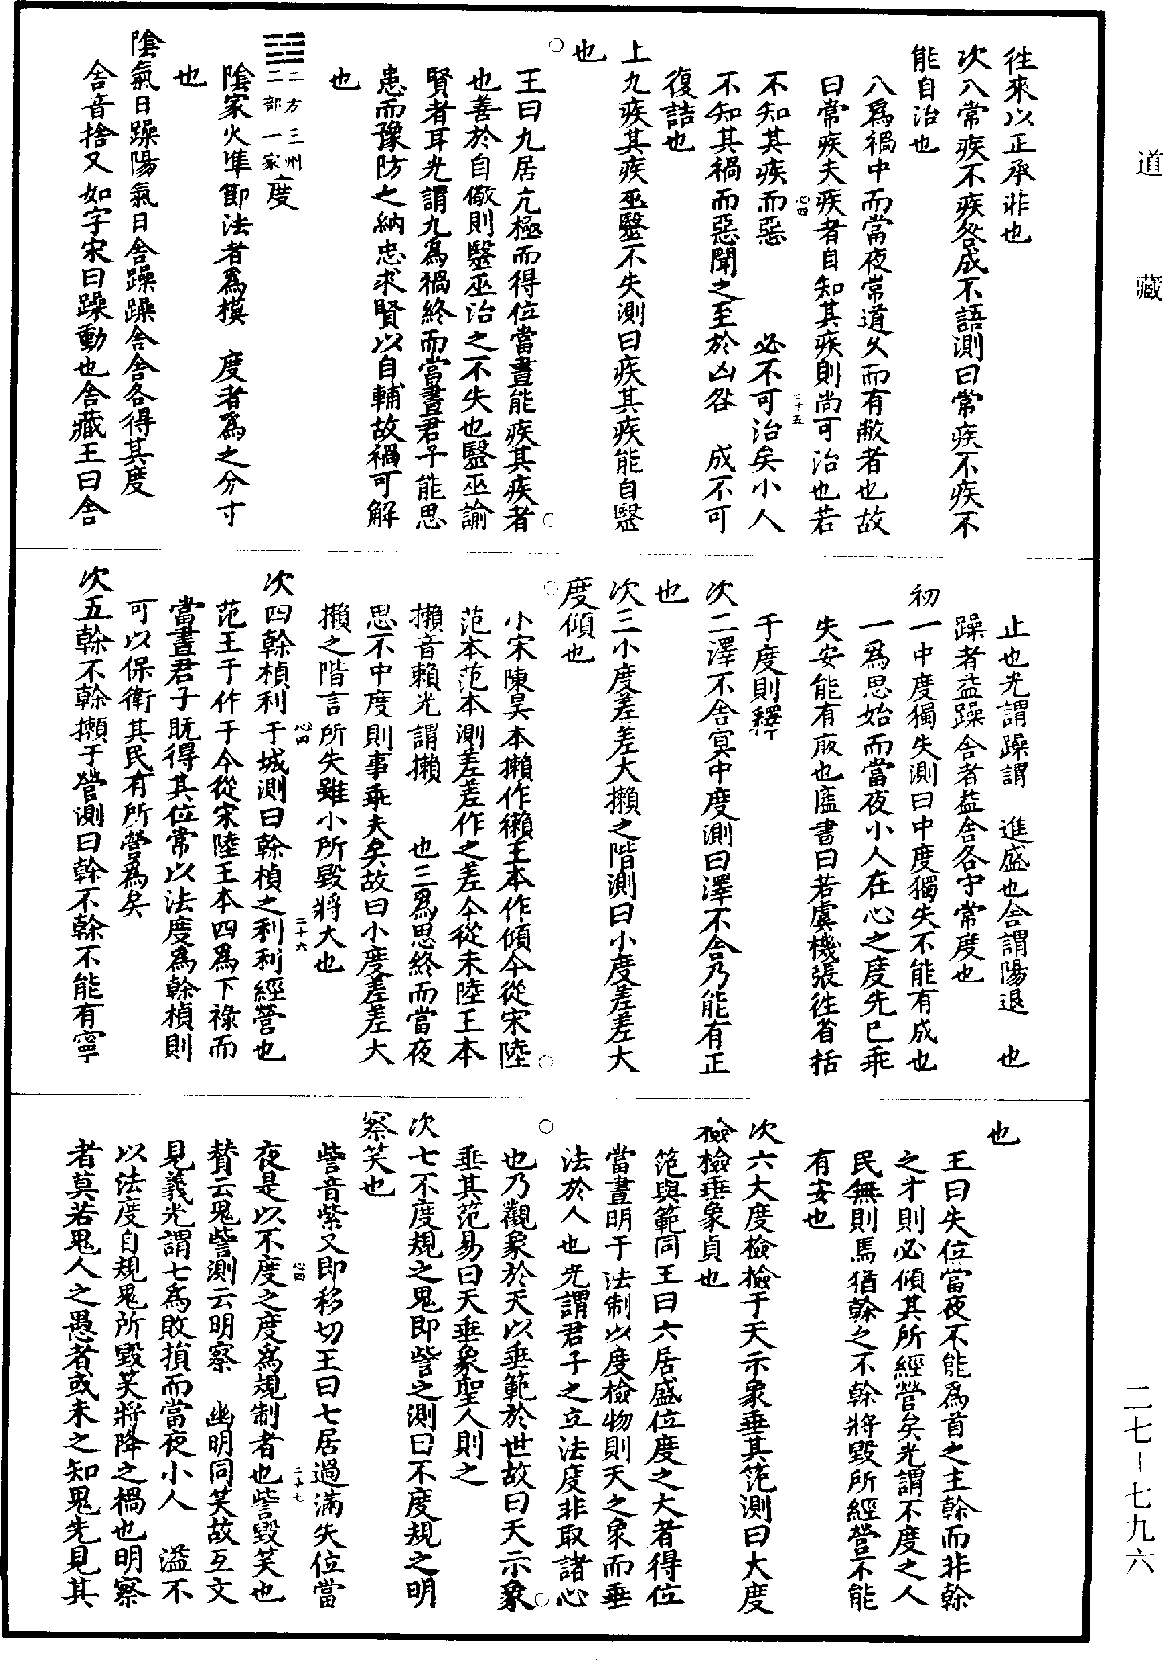 道藏
往來以正承非也
次八常疾不疾咎成不語測曰常疾不疾不
能自治也
八爲禍中而當夜常道久而有敝者也故
曰常疾夫疾者自知其疾則尚可治也若
心四
三十五
不知其疾而惡 必不可治矣小人
不知其禍而惡聞之至於凶咎 成不可
復詰也
上九疾其疾巫毉不失測曰疾其疾能自毉
也
王曰九居亢極而得位當晝能疾其疾者
也善於自儆則毉巫治之不失也毉巫諭
賢者耳光謂九爲禍終而當晝君子能思
患而豫防之納忠求賢以自輔故禍可解
也
二方三州
二部一家
度
陰家火準節法者爲模 度者爲之分寸
也
陰氣日躁陽氣日舎躁躁舎舎各得其度
舎音捨又如字宋曰躁動也舎藏王曰舎
止也光謂躁謂 進盛也舎謂陽退 也
躁者益躁舎者益舎各守常度也
初一中度獨失測曰中度獨失不能有成也
一爲思始而當夜小人在心之度先已乖
失安能有厥也虞書曰若虞機張往省括
于度則釋
次二澤不舎冥中度測曰澤不舎乃能有正
也
次三小度差差大攋之階測曰小度差差大
度傾也
小宋陳吴本攋作䙲王本作傾今從宋陸
范本范本測差差作之差今從宋陸王本
攋音賴光謂攋 也三爲思終而當夜
思不中度則事乖失矣故曰小度差差大
攋之階言所失雖小所毀將大也
心四
三十六
次四榦楨利于城測曰榦楨之利利經營也
范王于作于今從宋陸王本四爲下祿而
當晝君子既得其位常以法度爲榦楨則
可以保衛其民有所營爲矣
次五榦不榦攋于營測曰榦不榦不能有寧
也
王曰失位當夜不能爲首之主榦而非榦
之才則必傾其所經營矣光謂不度之人
民無則焉猶榦之不榦將毀所經營不能
有安也
次六大度檢檢于天示象垂其笵測曰大度
檢檢垂象貞也
笵與範同王曰六居盛位度之大者得位
當晝明于法制以度檢物則天之象而垂
法於人也光謂君子之立法度非取諸心
也乃觀象於天以垂範於世故曰天示象
垂其范易曰天垂象聖人則之
次七不度規之鬼即訾之測曰不度規之明
察笑也
訾音紫又即移切王曰七居過滿失位當
夜是以不度之度爲規制者也訾毀笑也
心四
三十七
賛云鬼訾測云明察 幽明同笑故互文
見義光謂七爲敗損而當夜小人 溢不
以法度自規鬼所毀笑將降之禍也明察
者莫若鬼人之愚者或未之知鬼先見其
二七-七九六